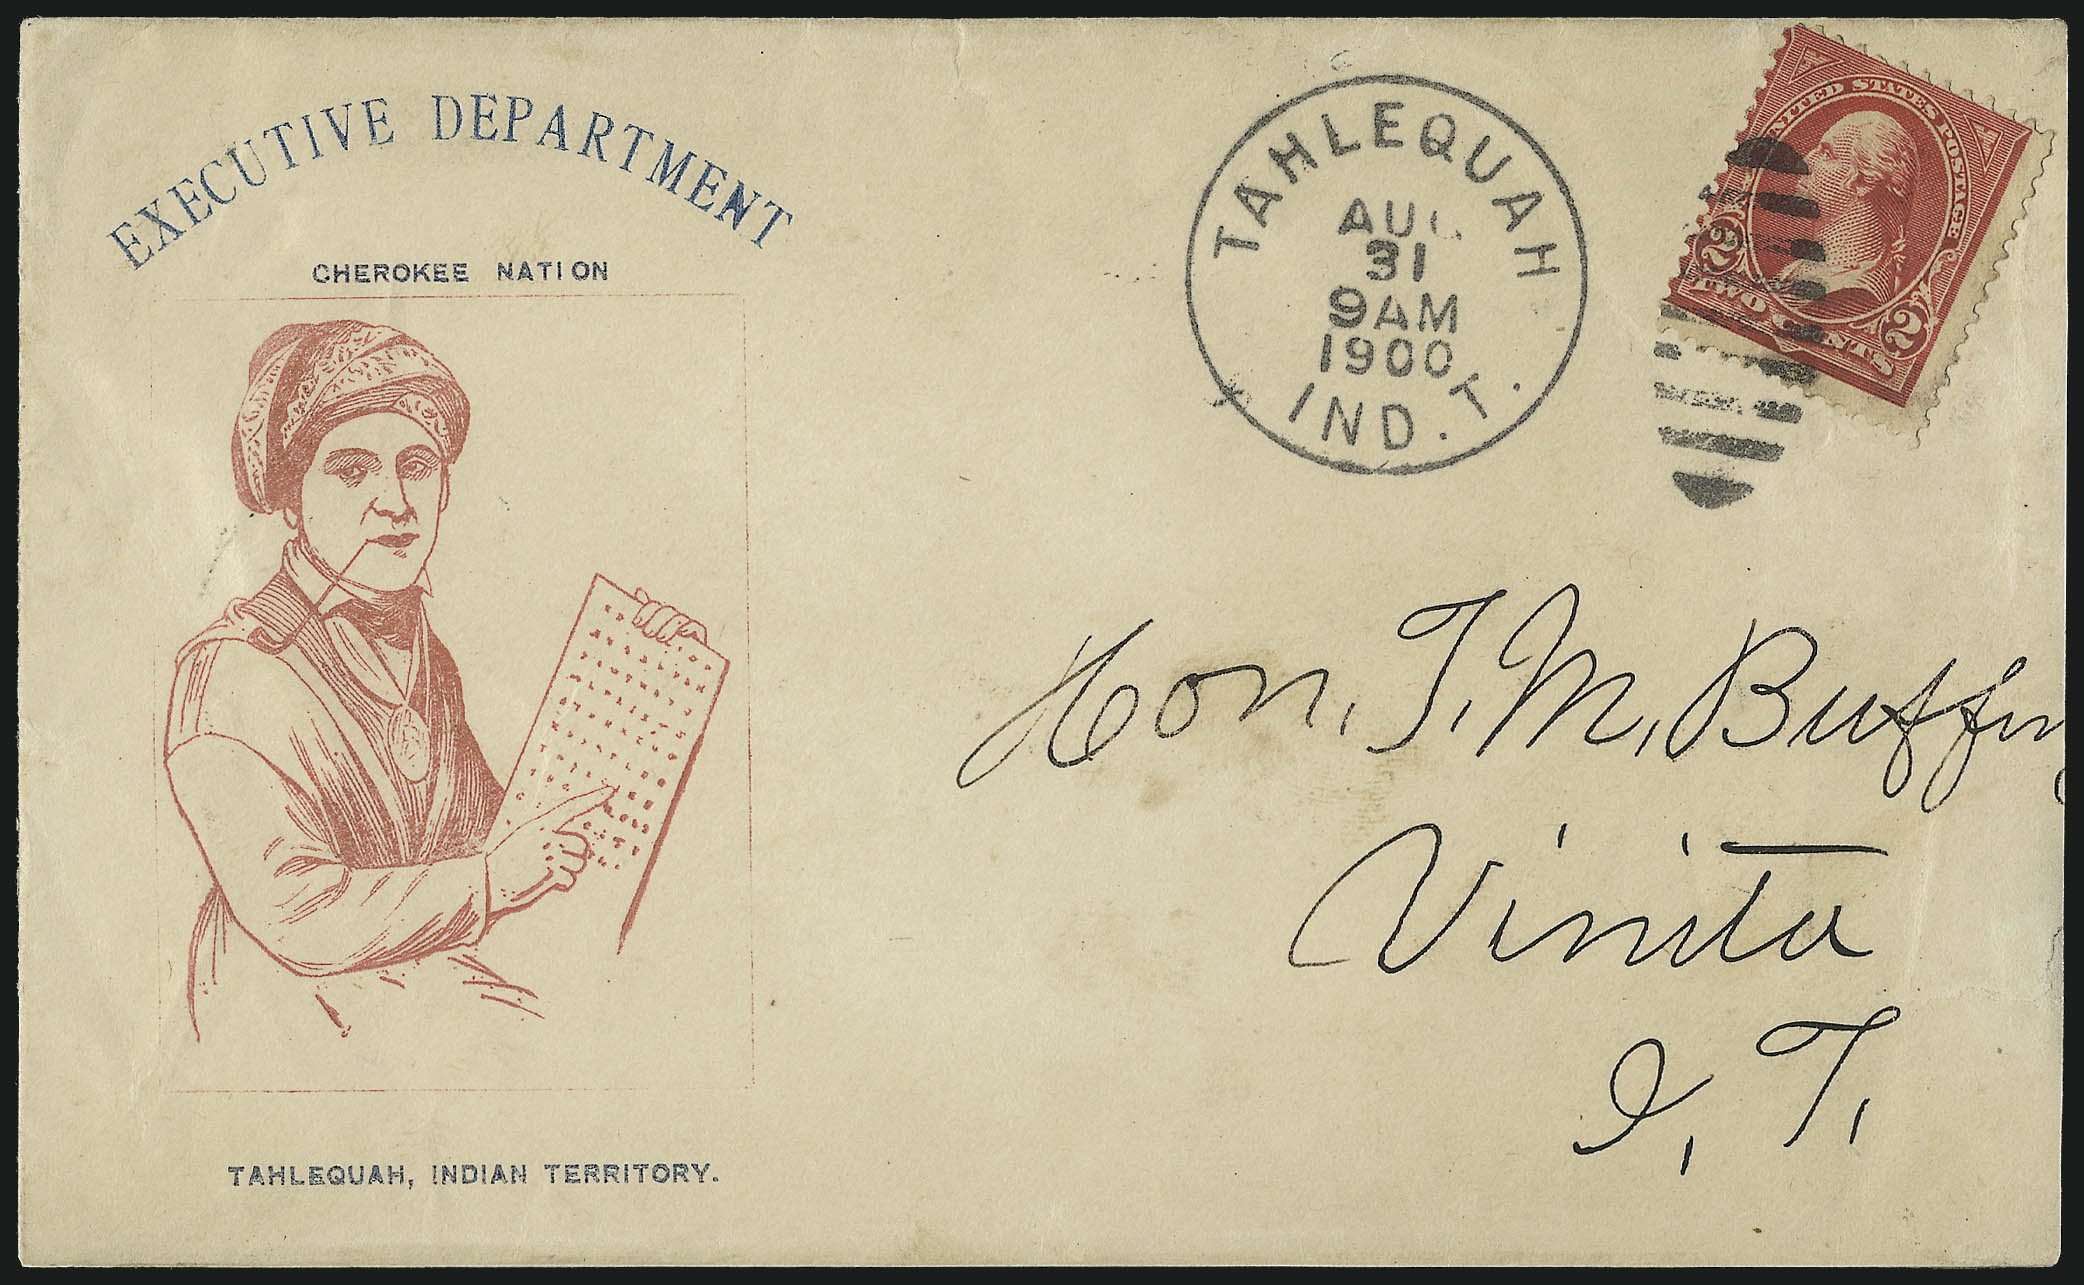 EXECUTIVE DEPARTMENT
CHEROKEE NATION
TAHLEQUAH, INDIAN TERRITORY.
TAHLEQUAH
AUG
31
9AM
1900
IND. T.
UNITED STATES POSTAGE
2 2
TWO CENTS
Hon. T. M. Buffin
Vinita
I. T.